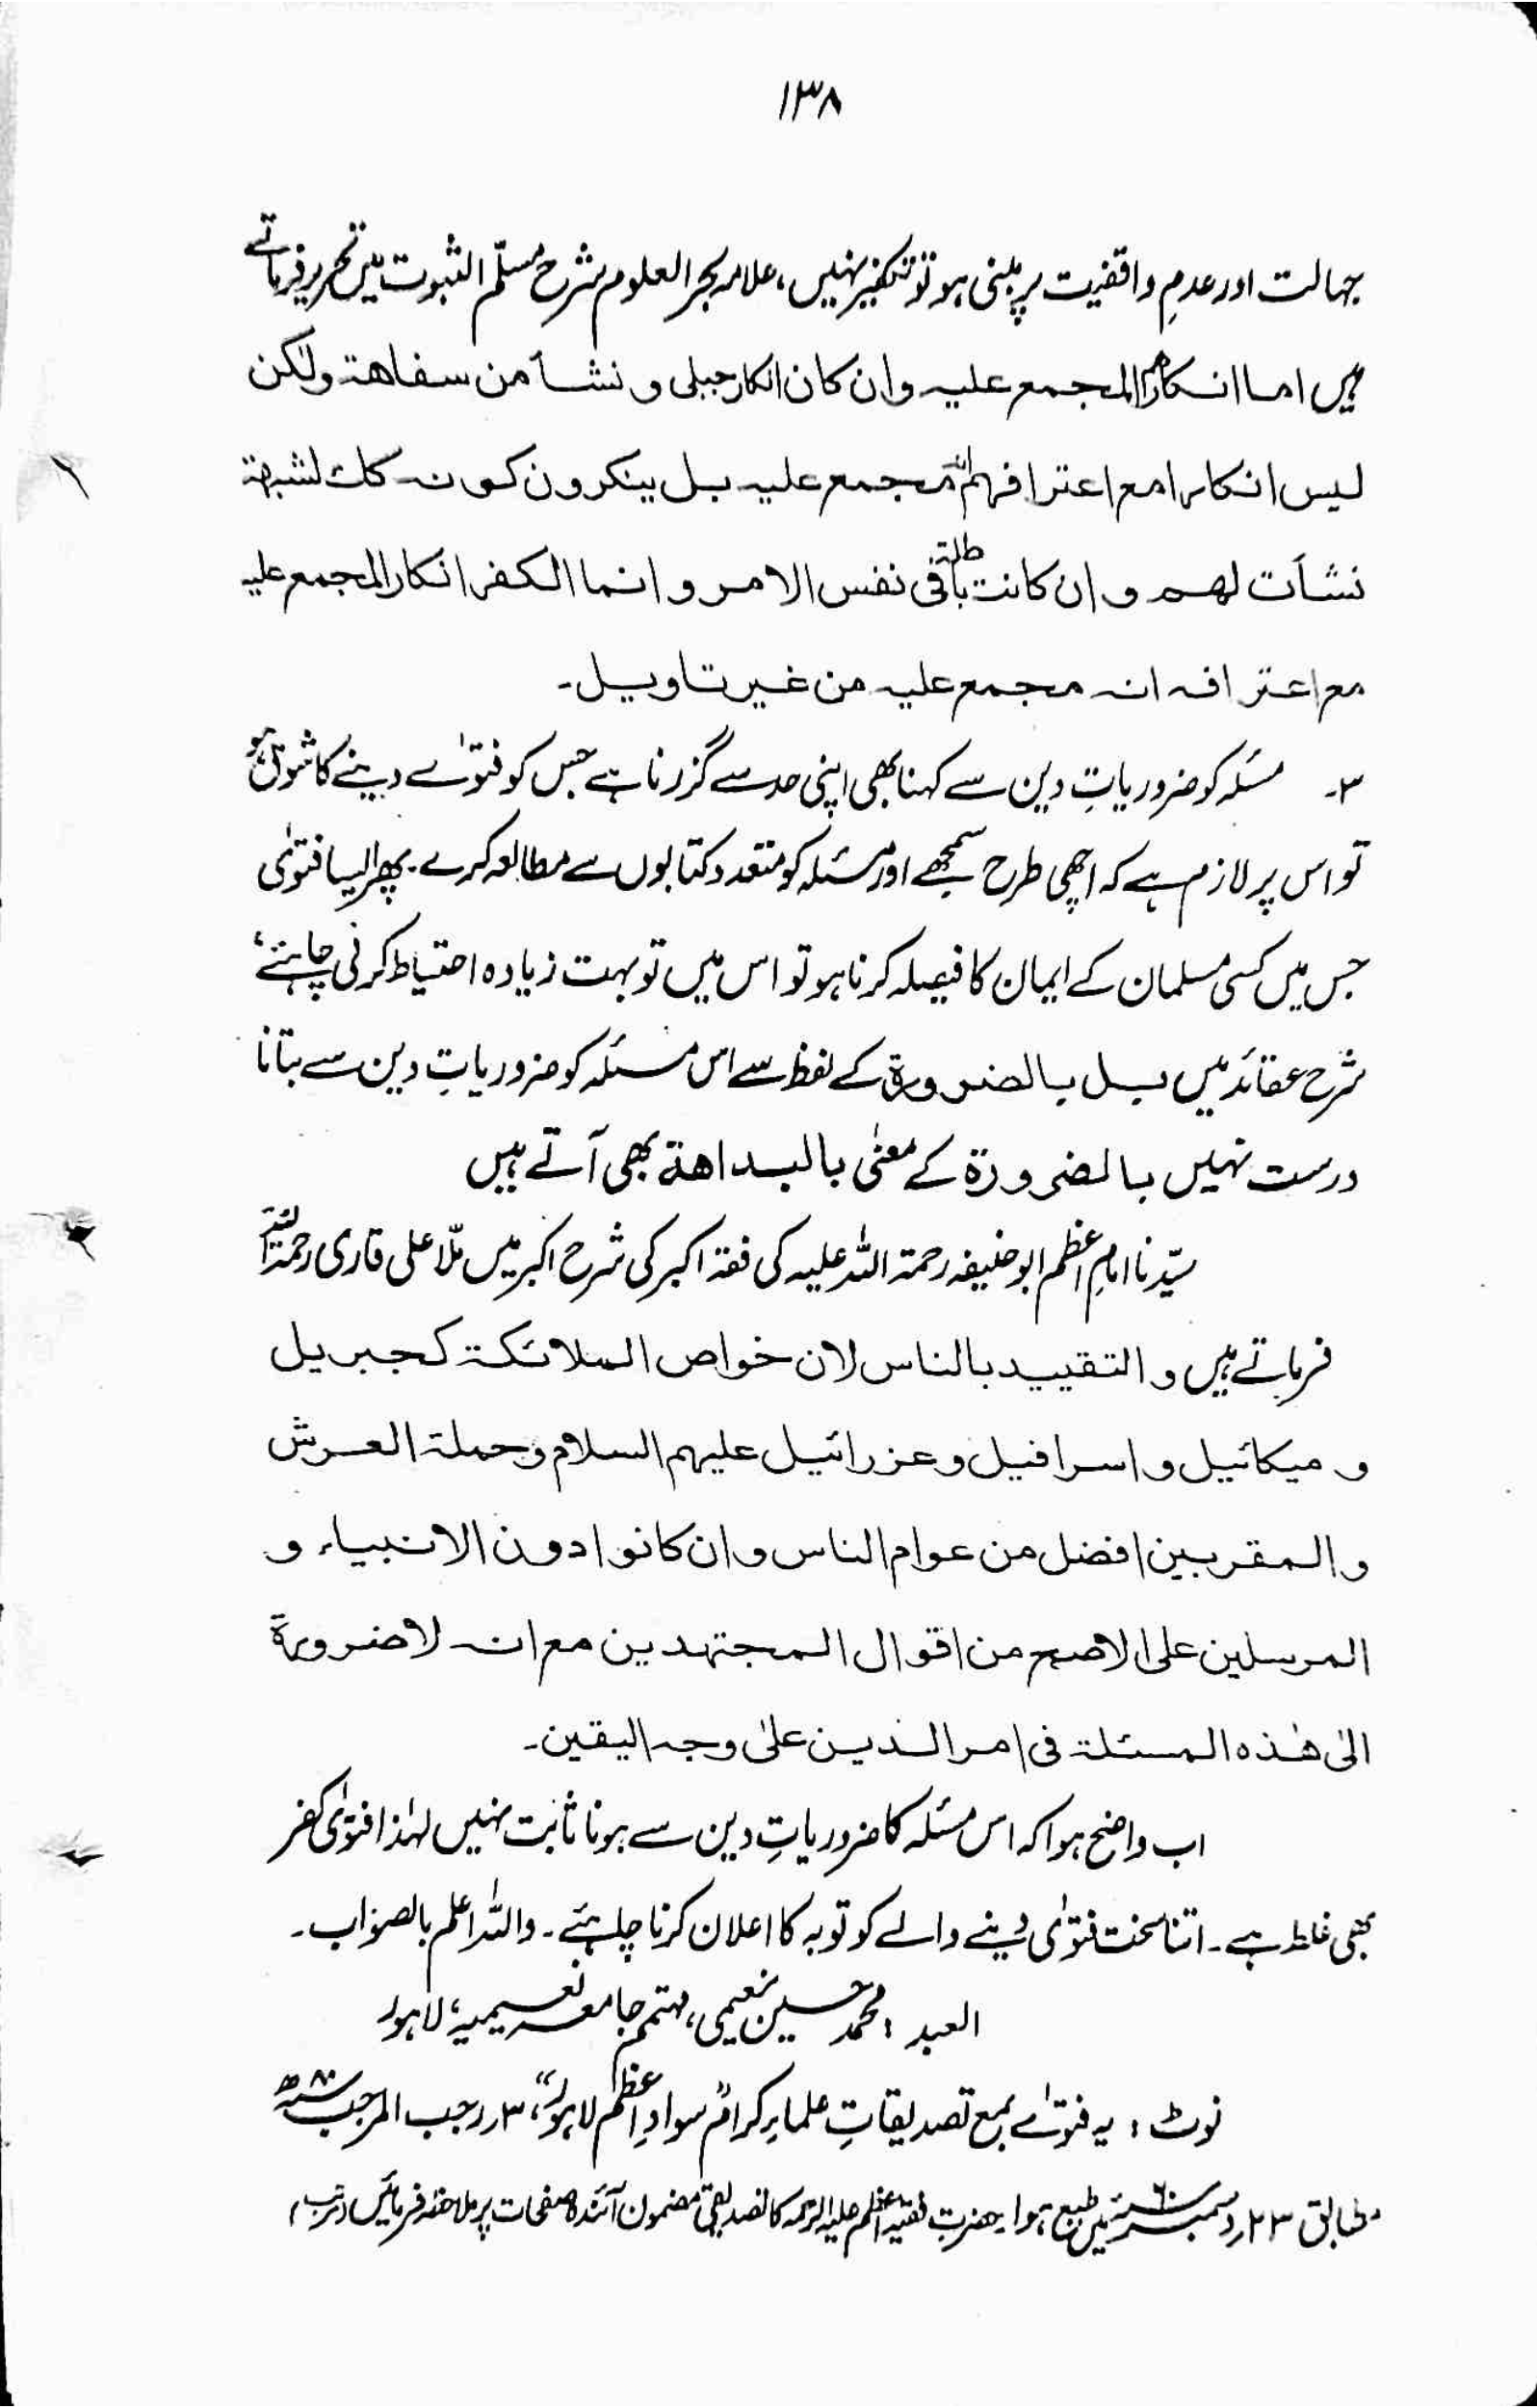 ۱۳۸
جہالت اور عدمِ واقفیت پر مبنی ہو تو تکفیر نہیں، علامہ بحر العلوم شرح مسلّم الثبوت میں تحریر فرماتے
ہیں اما انکارهم المجمع علیہ وان کان انکار جبلی و نشأ من سفاهۃ ولٰکن
لیس انکارا مع اعترافهم انہ مجمع علیہ بل ینکرون کونہ کذلک لشبهۃ
نشأت لهم و ان کانت باطلۃ فی نفس الامر و انما الکفر انکار المجمع علیہ
مع اعترافہ انہ مجمع علیہ من غیر تاویل۔
۳۔ مسئلہ کو ضروریاتِ دین سے کہنا بھی اپنی حد سے گزرنا ہے جس کو فتوٰے دینے کا شوق ہو
تو اس پر لازم ہے کہ اچھی طرح سمجھے اور مسئلہ کو متعدد کتابوں سے مطالعہ کرے۔ پھر ایسا فتوٰی
جس میں کسی مسلمان کے ایمان کا فیصلہ کرنا ہو تو اس میں تو بہت زیادہ احتیاط کرنی چاہئے،
شرح عقائد میں بل بالضرورۃ کے لفظ سے اس مسئلہ کو ضروریاتِ دین سے بتانا
درست نہیں بالضرورۃ کے معنٰی بالبداهۃ بھی آتے ہیں
سیّدنا امامِ اعظم ابو حنیفہ رحمۃ اللہ علیہ کی فقہ اکبر کی شرح اکبر میں ملّا علی قاری رحمۃ اللہ
فرماتے ہیں و التقیید بالناس لان خواص الملائکۃ کجبریل
و میکائیل و اسرافیل و عزرائیل علیهم السلام وحملۃ العرش
و المقربین افضل من عوام الناس وان کانوا دون الانبیاء و
المرسلین علی الاصح من اقوال المجتهدین مع انہ لا ضرورۃ
الیٰ هٰذه المسئلۃ فی امر الدین علیٰ وجہ الیقین۔
اب واضح ہوا کہ اس مسئلہ کا ضروریاتِ دین سے ہونا ثابت نہیں لہٰذا فتویٰ کفر
بھی غلط ہے۔ اتنا سخت فتوٰی دینے والے کو توبہ کا اعلان کرنا چاہئے۔ واللہ اعلم بالصواب۔
العبد : محمد حسین نعیمی، مہتمم جامعہ نعیمیہ، لاہور
نوٹ : یہ فتوٰے بمع تصدیقاتِ علماءِ کرام "سوادِ اعظم لاہور"، ۳ رجب المرجب ۸۰ھ
مطابق ۲۳ دسمبر ۶۰ء میں طبع ہوا۔ حضرت فقیہ اعظم علیہ الرحمہ کا تصدیقی مضمون آئندہ صفحات پر ملاحظہ فرمائیں (مرتب)